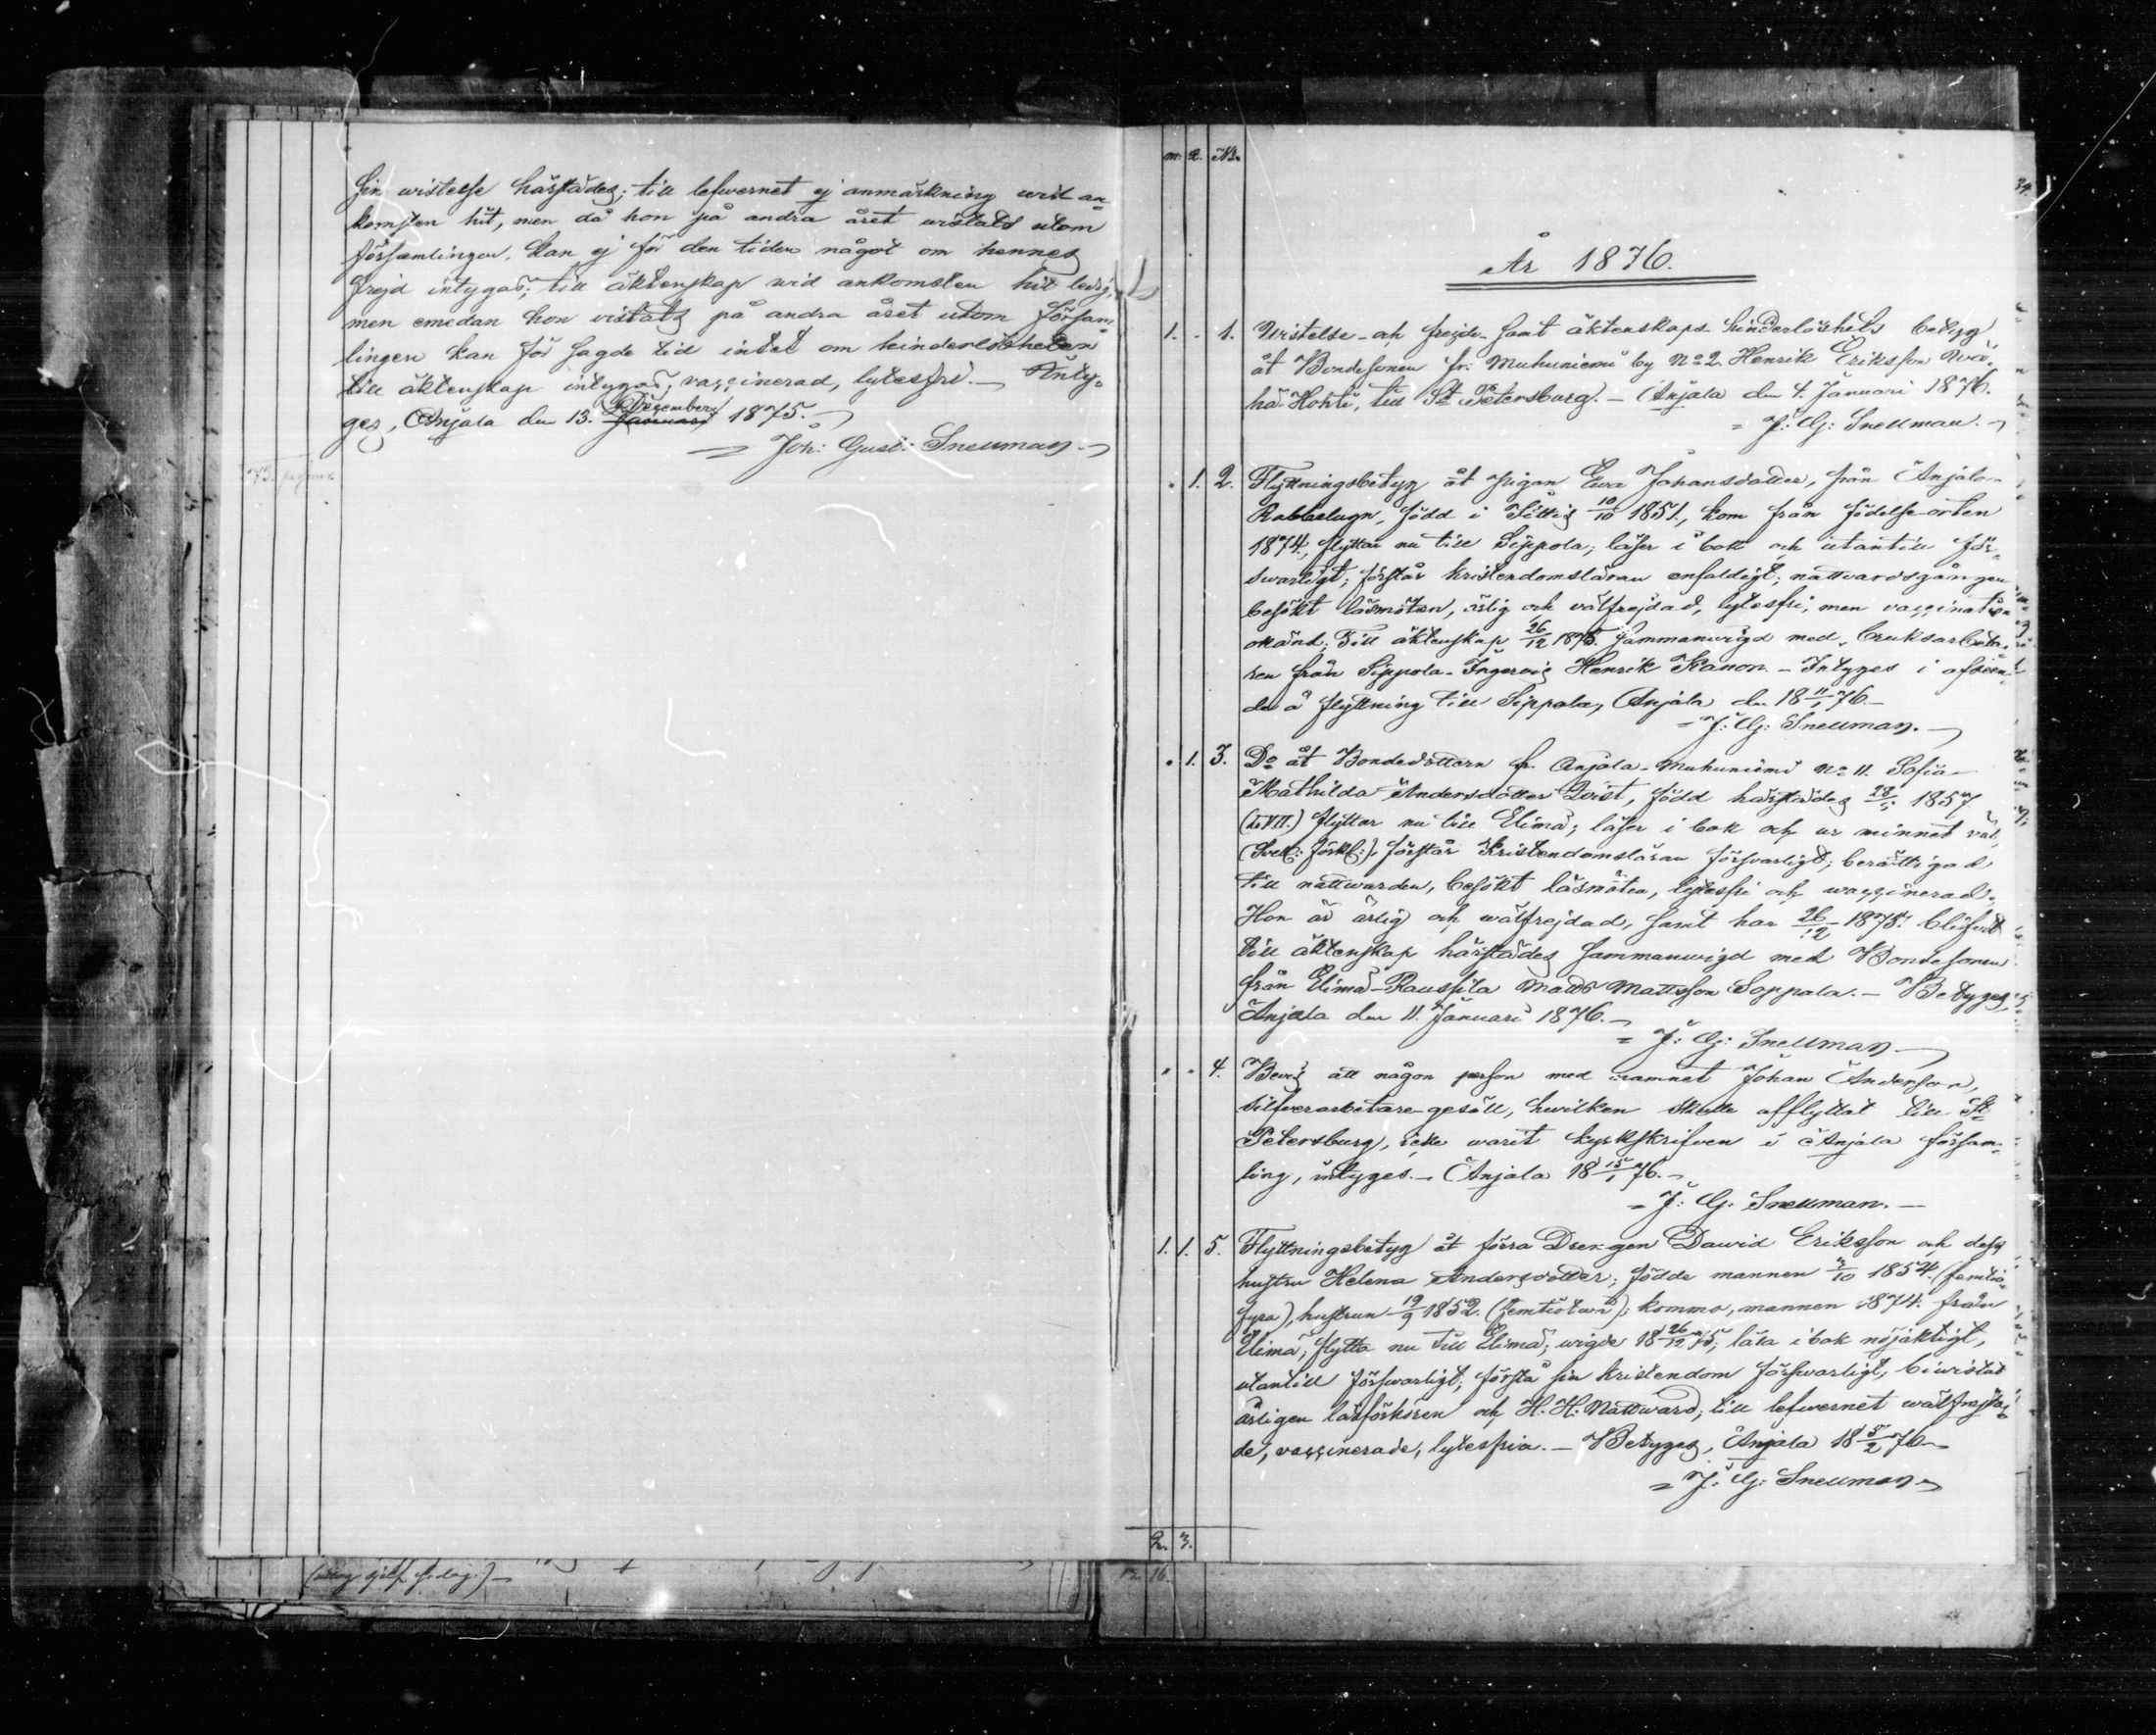 sin wistelse härstädes; till lefwernet ej anmärkning wid an-
komsten hit, men då hon på andra året wistats utom
församlingen, kan ej för den tiden något om hennes
frejd intygas; till äktenskap wid ankomsten hit ledig,
men emedan hon vistats på andra året utom försam-
lingen kan för sagde tid intet om hinderlösheten
till äktenskap intygas; vaccinerad, lytesfri. — Inty-
ges, Anjala den 13. Januari December 1875. —
= Joh: Gust: Snellman. —
m. q. No.
34.
År 1876.
1. - 1. Wistelse- och frejde- samt äktenskaps hinderlöshets betyg
åt Bondesonen fr. Muhuniemi by No 2. Henrik Eriksson Wä-
hä-Hohti, till St. Petersburg. — Anjala den 4. Januari 1876.
= J: G: Snellman. —
- 1. 2. Flyttningsbetyg åt pigan Eva Johansdotter, från Anjala-
Rabbelugn, född i Sittis 10/10 1851., kom från födelse-orten
1874., flyttar nu till Sippola; läser i bok och utantill för-
svarligt; förstår kristendomsläran enfaldigt; nattvardsgången
besökt läsmöten, ärlig och välfrejdad, lytesfri, men vaccination
okänd; Till äktenskap 26/12 1875 sammanvigd med bruksarbeta-
ren från Sippola-Ingerois Henrik Kanon. — Intyges i afseen-
de å flyttning till Sippola, Anjala den 18 11/1 76. —
= J: G: Snellman. —
- 1. 3. Do åt Bondedottern fr. Anjala-Muhuniemi No 11. Sofia
Mathilda Andersdotter Qvist, född härstädes 28/5 1857
flyttar nu till Elimä; läser i bok och ur minnet väl,
(Sveb: förkl:). förstår Kristendomsläran försvarligt; berättigad
till nattwarden, besökt läsmöten, lytesfri och vaccinerad.
Hon är ärlig och wälfrejdad, samt har 26/12 1875. blifvit
till äktenskap härstädes sammanwigd med Bondesonen
från Elimä-Raussila Matts Mattsson Soppala. — Betyges,
Anjala den 11. Januari 1876. —
= J: G: Snellman —
- - 4. Bevis att någon person med namnet Johan Anderson,
silfverarbetare-gesäll, hwilken skulle afflyttat till St.
Petersburg, icke warit kyrkskrifven i Anjala försam-
ling, intyges. — Anjala 18 15/1 76. —
= J: G: Snellman. —
1. 1. 5. Flyttningsbetyg åt förra Drengen Dawid Eriksson och dess
hustru Helena Andersdotter; födde mannen 3/10 1854 (femtio-
fyra), hustrun 19/9 1852. (femtiotwå); kommo, mannen 1874. från
Elimä, flytta nu till Elimä; wigde 18 26/12 75; läsa i bok nöjaktigt,
utantill försvarligt; förstå sin kristendom försvarligt, biwistat
årligen läsförhören och H. H. Nattward; till lefwernet wälfrejda-
de, vaccinerade, lytesfria. — Betyges, Anjala 18 5/2 76. —
= J: G: Snellman —
2. 3.
16.